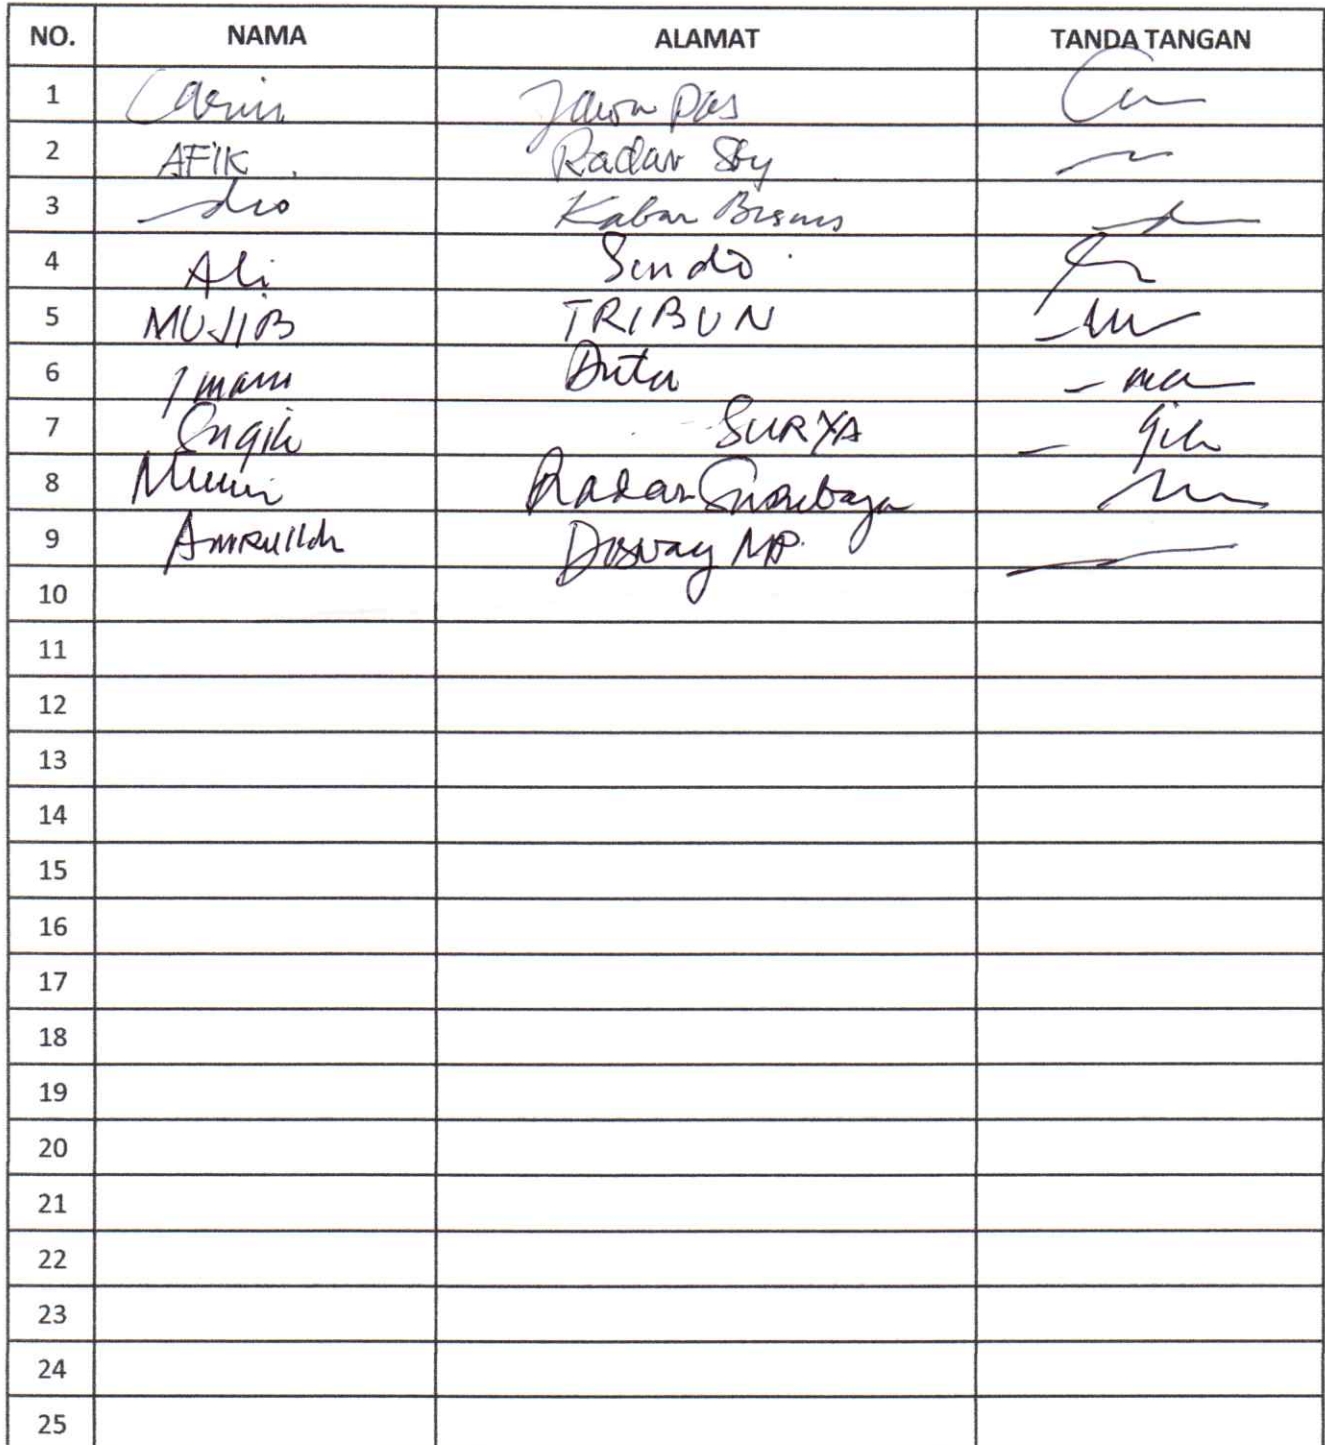 NO. NAMA ALAMAT TANDA TANGAN
1 Carin Jawa Pos
2 AFIK Radar Sby
3 Kabar Bisnis
4 Ali Sindo
5 MUJIB TRIBUN
6 Imam Duta
7 Sugih SURYA
8 Radar Surabaya
9 Amrullah
10
11
12
13
14
15
16
17
18
19
20
21
22
23
24
25